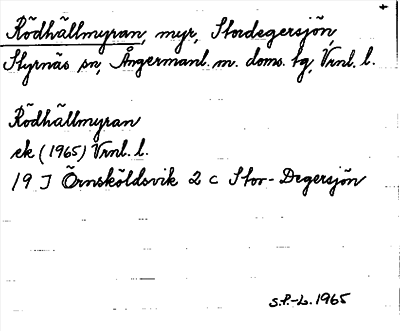 +
Rödhällmyran, myr, Stordegersjön,
Styrnäs sn, Ångermanl. m. doms. tg, Vrnl. l.
Rödhällmyran
ek (1965) Vrnl. l.
19 J Örnsköldsvik 2 c Stor-Degersjön
S.P.-L. 1965